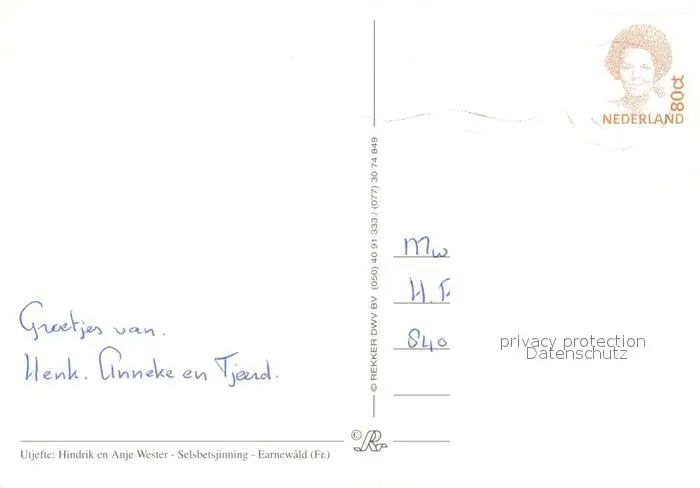 80ct
NEDERLAND
© REKKER DWV BV (050) 40 91 333 / (077) 30 74 849
Mw
H.
840
privacy protection
Datenschutz
Groetjes van.
Henk. Anneke en Tjeerd.
© R
Utjefte: Hindrik en Anje Wester - Selsbetsjinning - Earnewâld (Fr.)